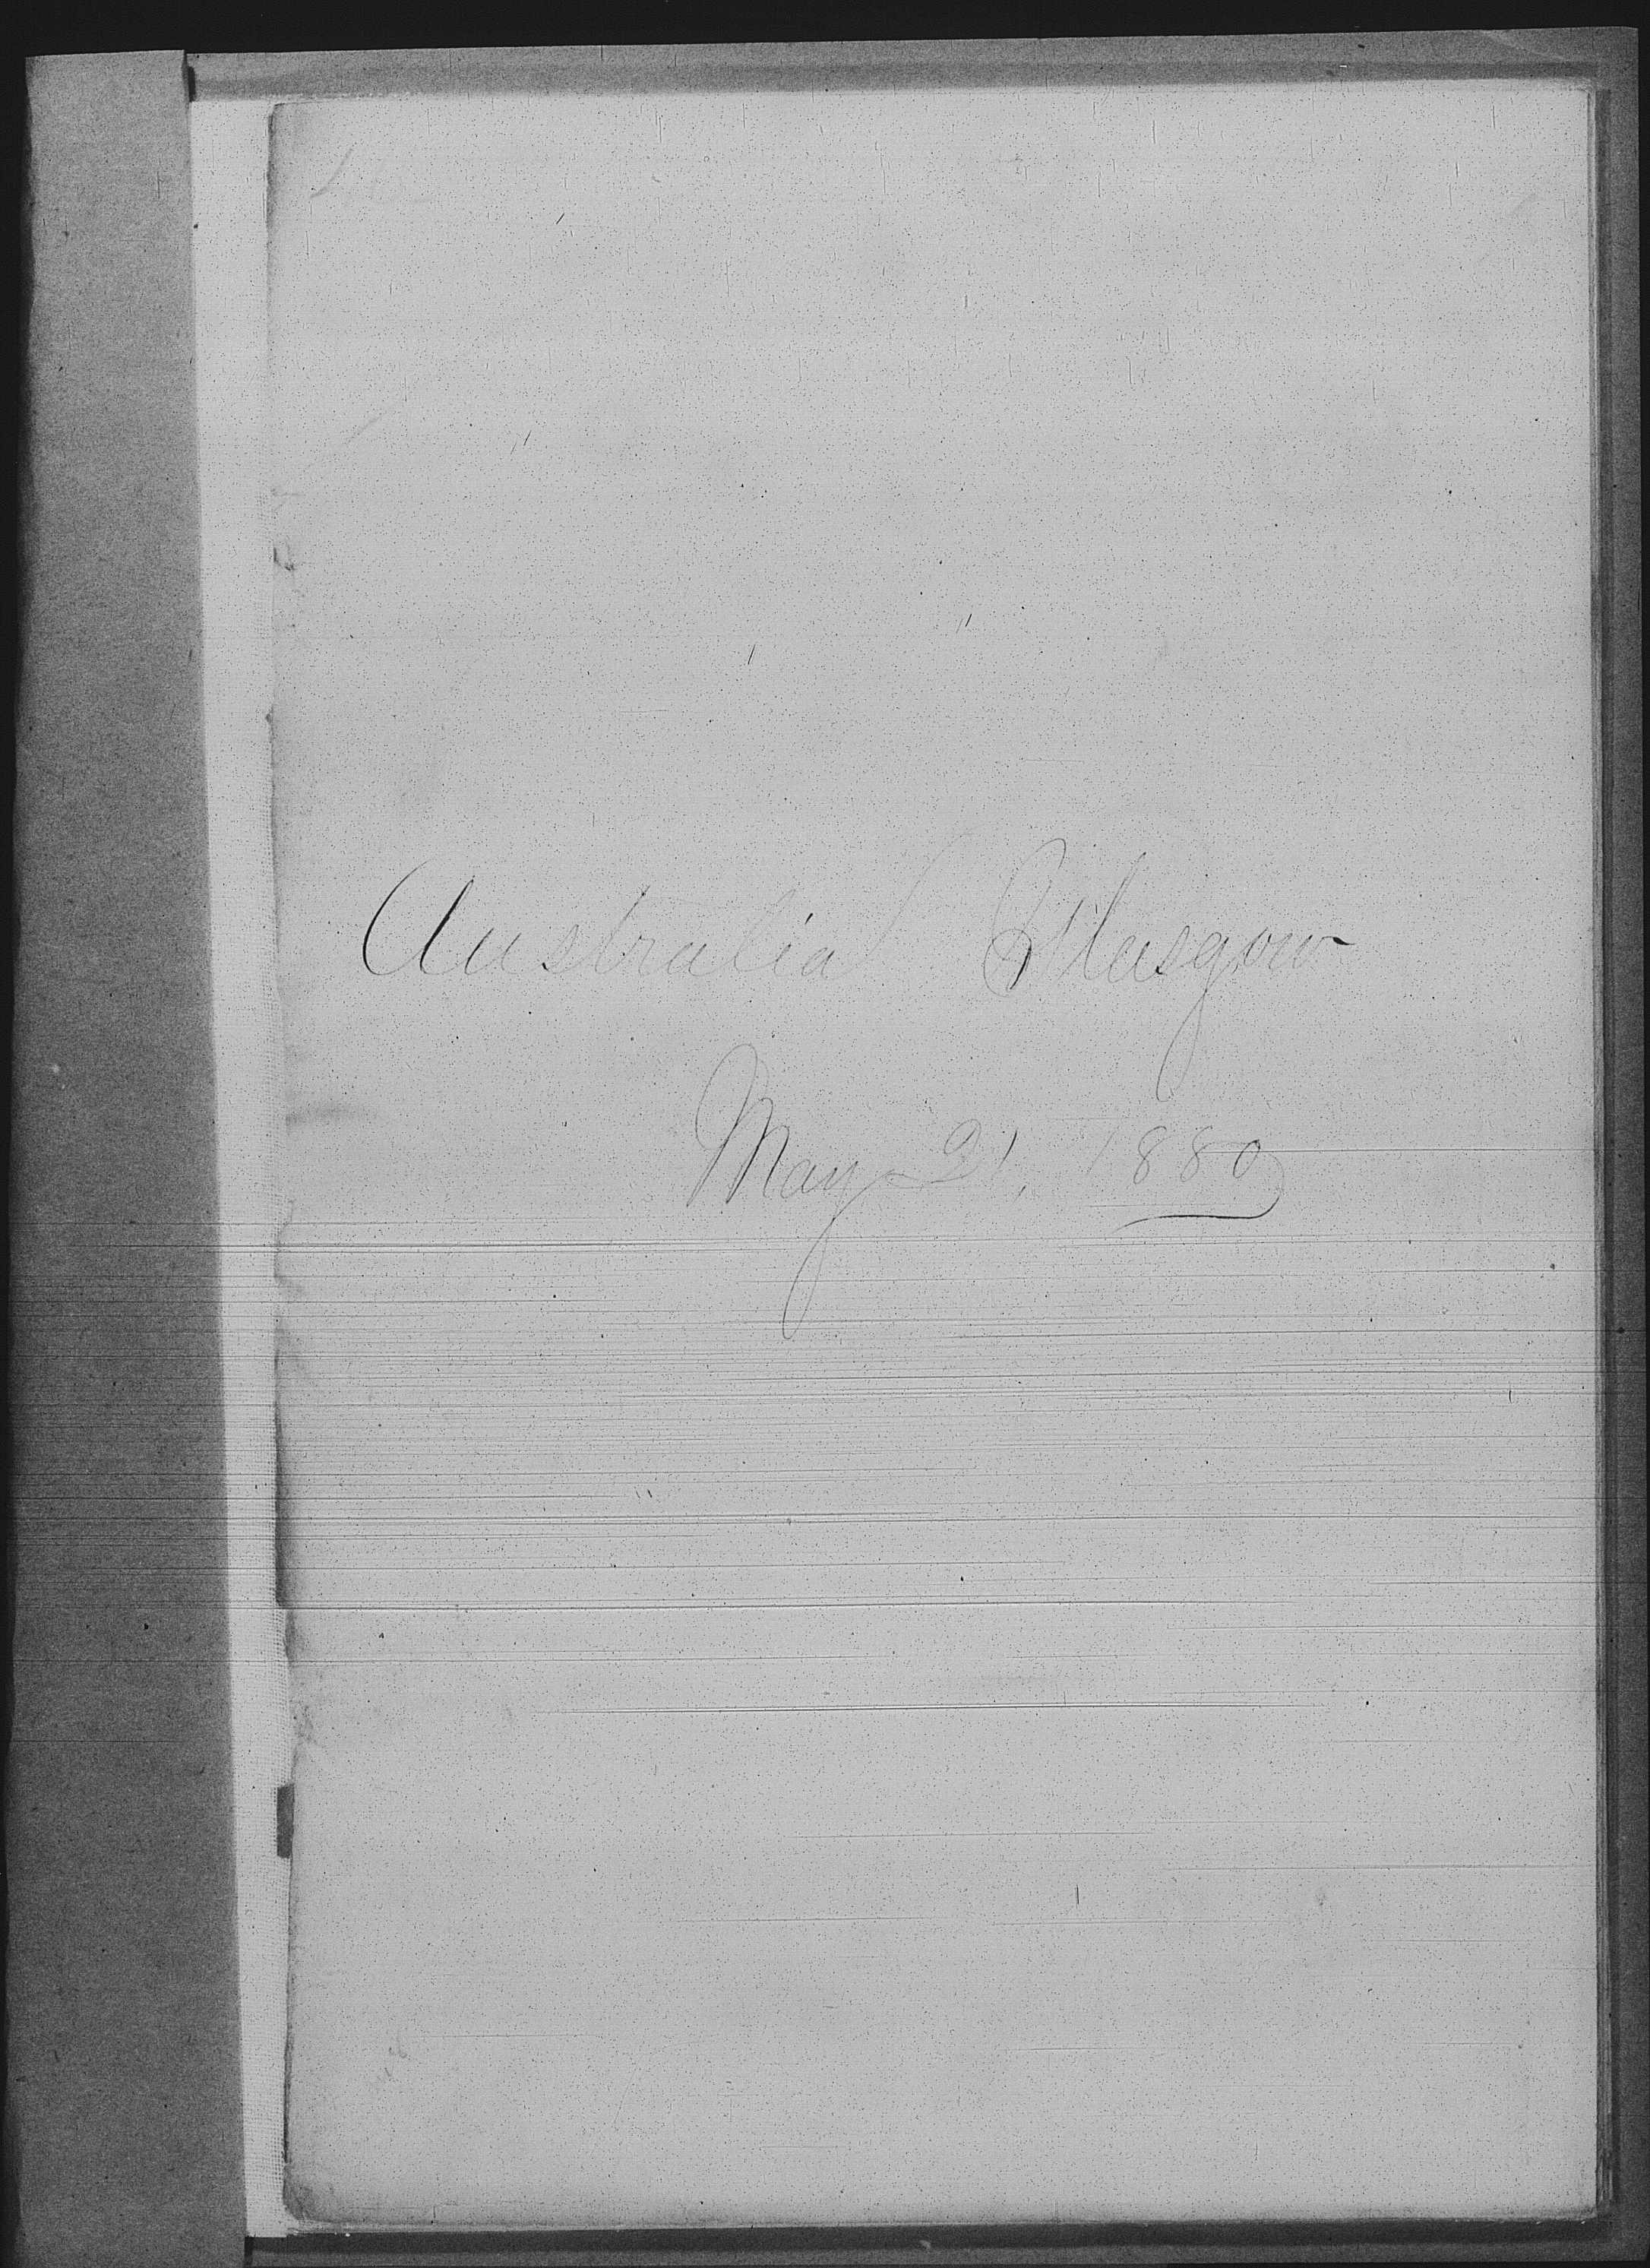 Australia Glasgow
May 21, 1880